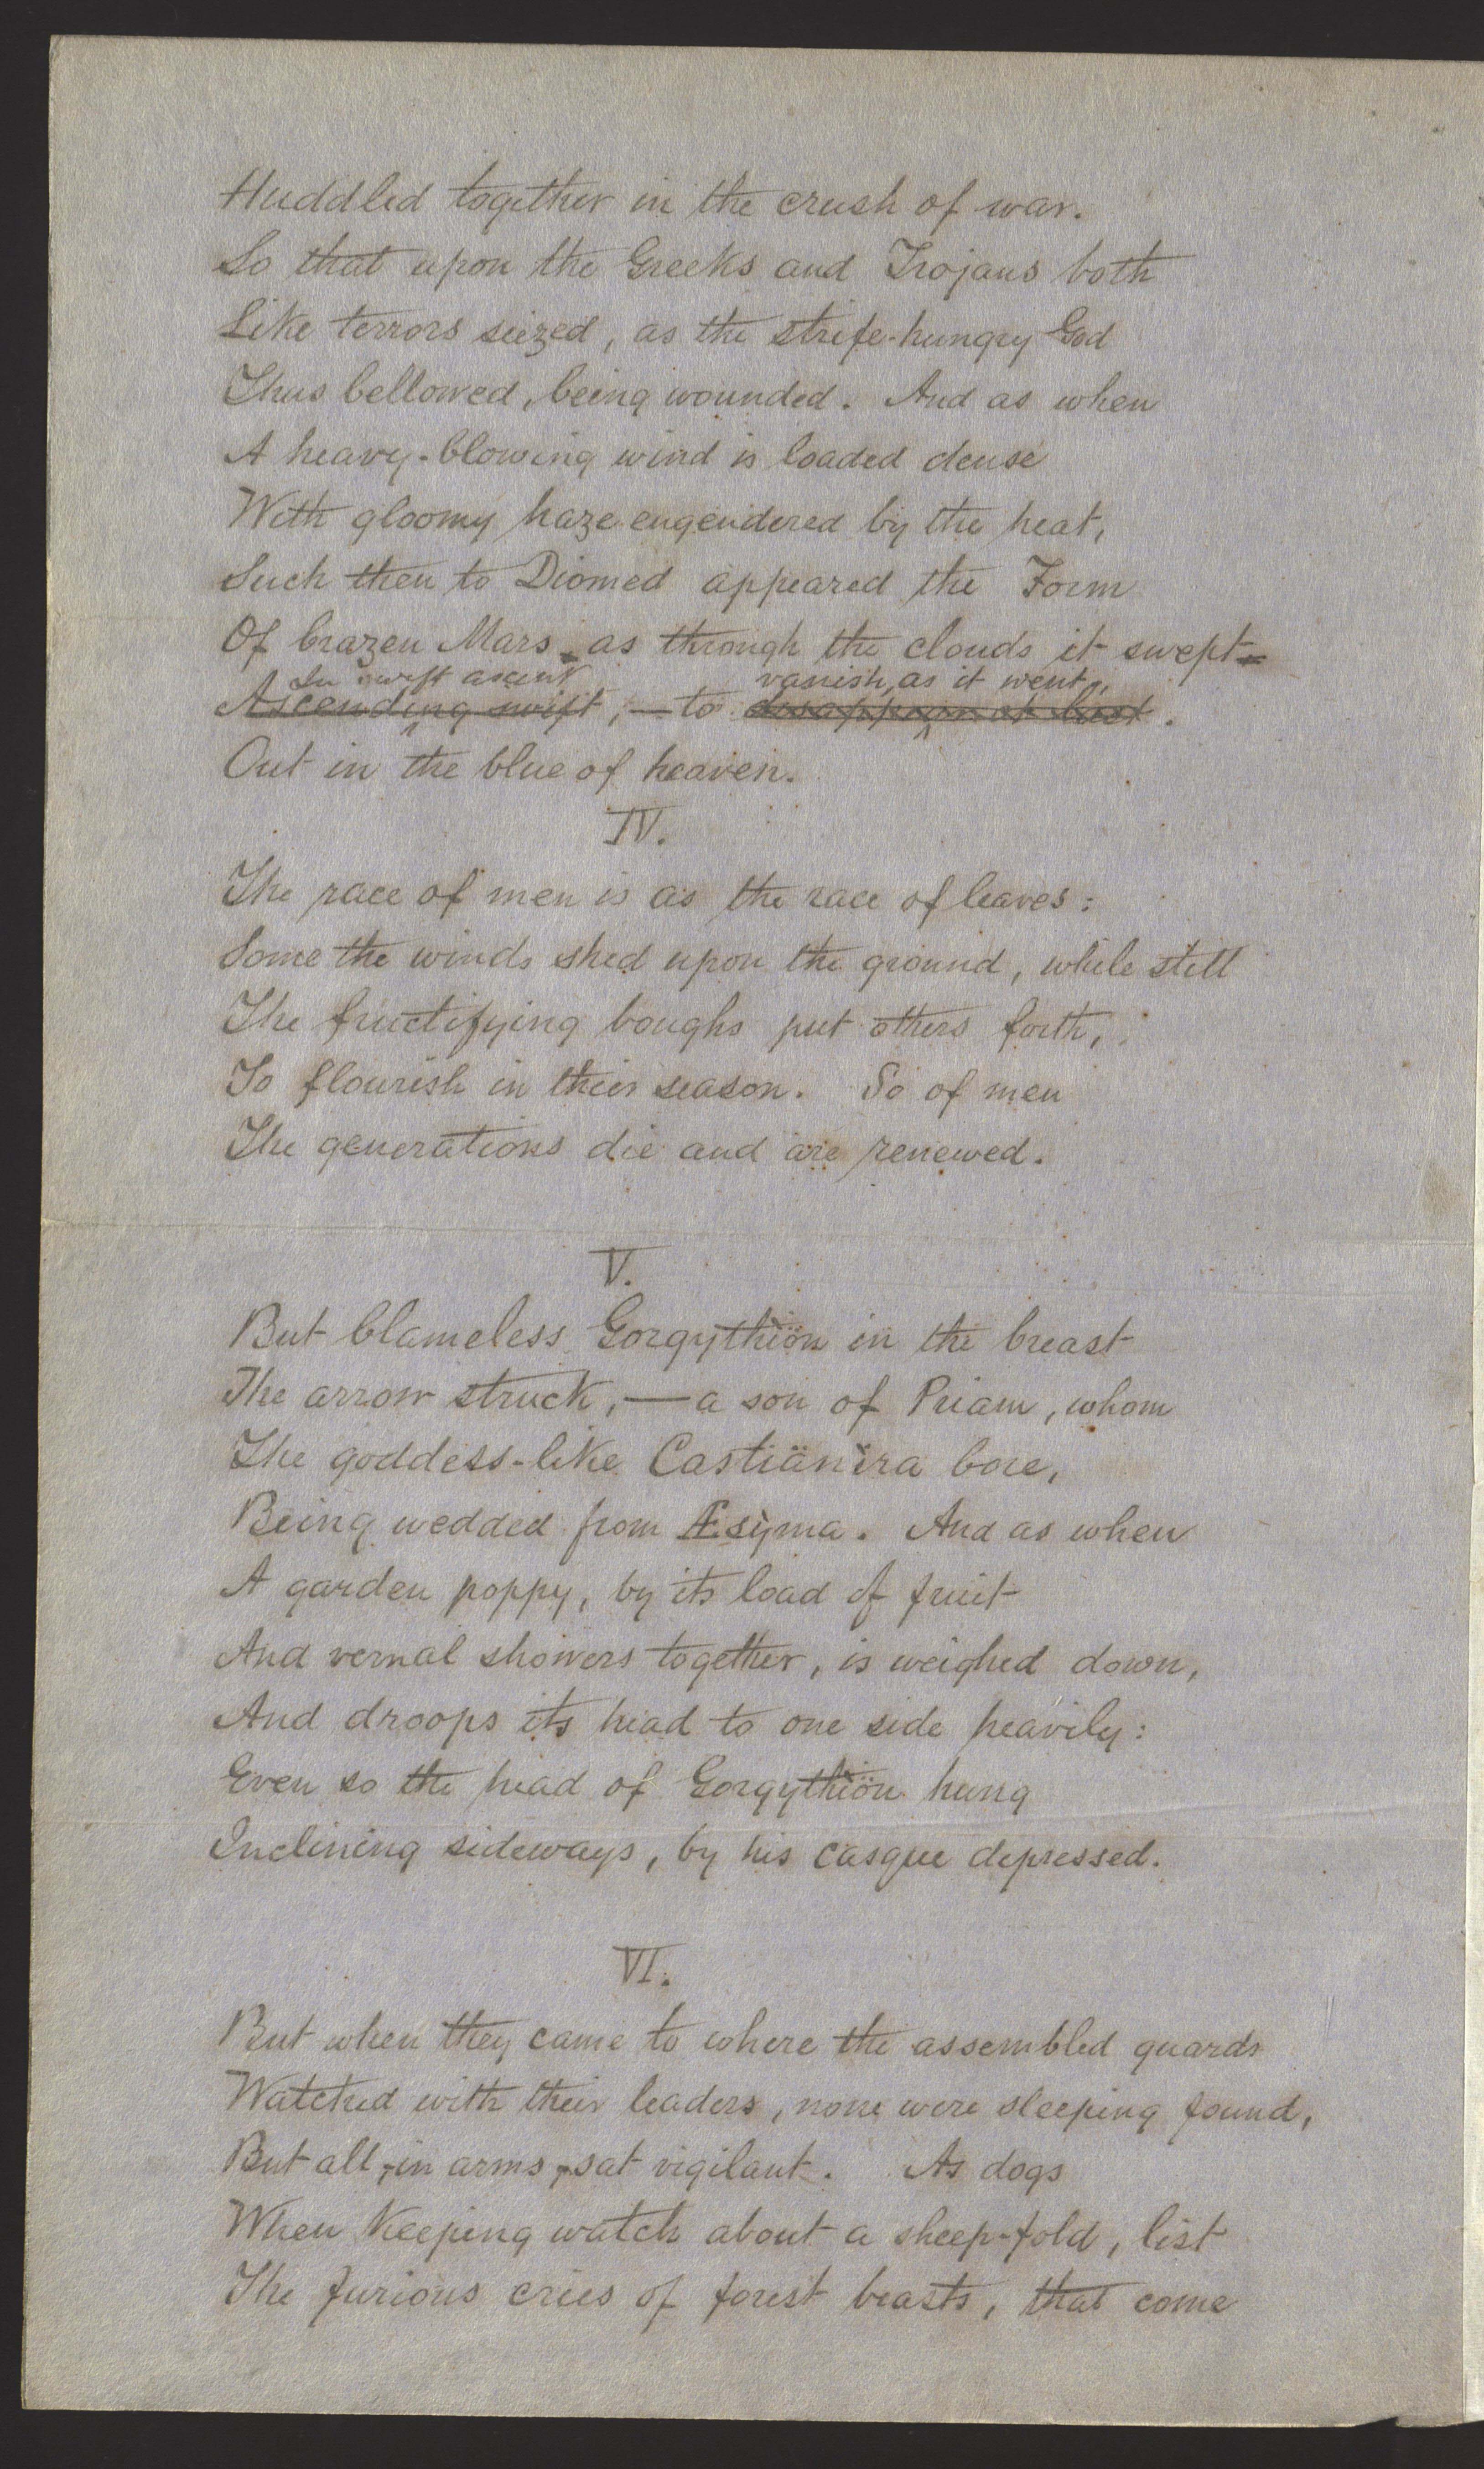 Huddled together in the crush of war.
So that upon the Greeks and Trojans both
Like terrors seized, as the strife-hungry God
Thus bellowed, being wounded. And as when
A heavy-blowing wind is loaded dense
With gloomy haze engendered by the heat,
Such then to Diomed appeared the Form
Of brazen Mars, as through the clouds it swept—
In swift ascent vanish, as it went,
Ascending swift, — to disappear at last.
Out in the blue of heaven.
IV.
The race of men is as the race of leaves:
Some the winds shed upon the ground, while still
The fructifying boughs put others forth,
To flourish in their season. So of men
The generations die and are renewed.
V.
But blameless Gorgythiön in the breast
The arrow struck, — a son of Priam, whom
The goddess-like Castiänira bore,
Being wedded from Æsyma. And as when
A garden poppy, by its load of fruit
And vernal showers together, is weighed down,
And droops its head to one side heavily:
Even so the head of Gorgythiön hung
Inclining sideways, by his casque depressed.
VI.
But when they came to where the assembled guards
Watched with their leaders, none were sleeping found,
But all, in arms, sat vigilant. As dogs
When keeping watch about a sheep-fold, list
The furious cries of forest beasts, that come